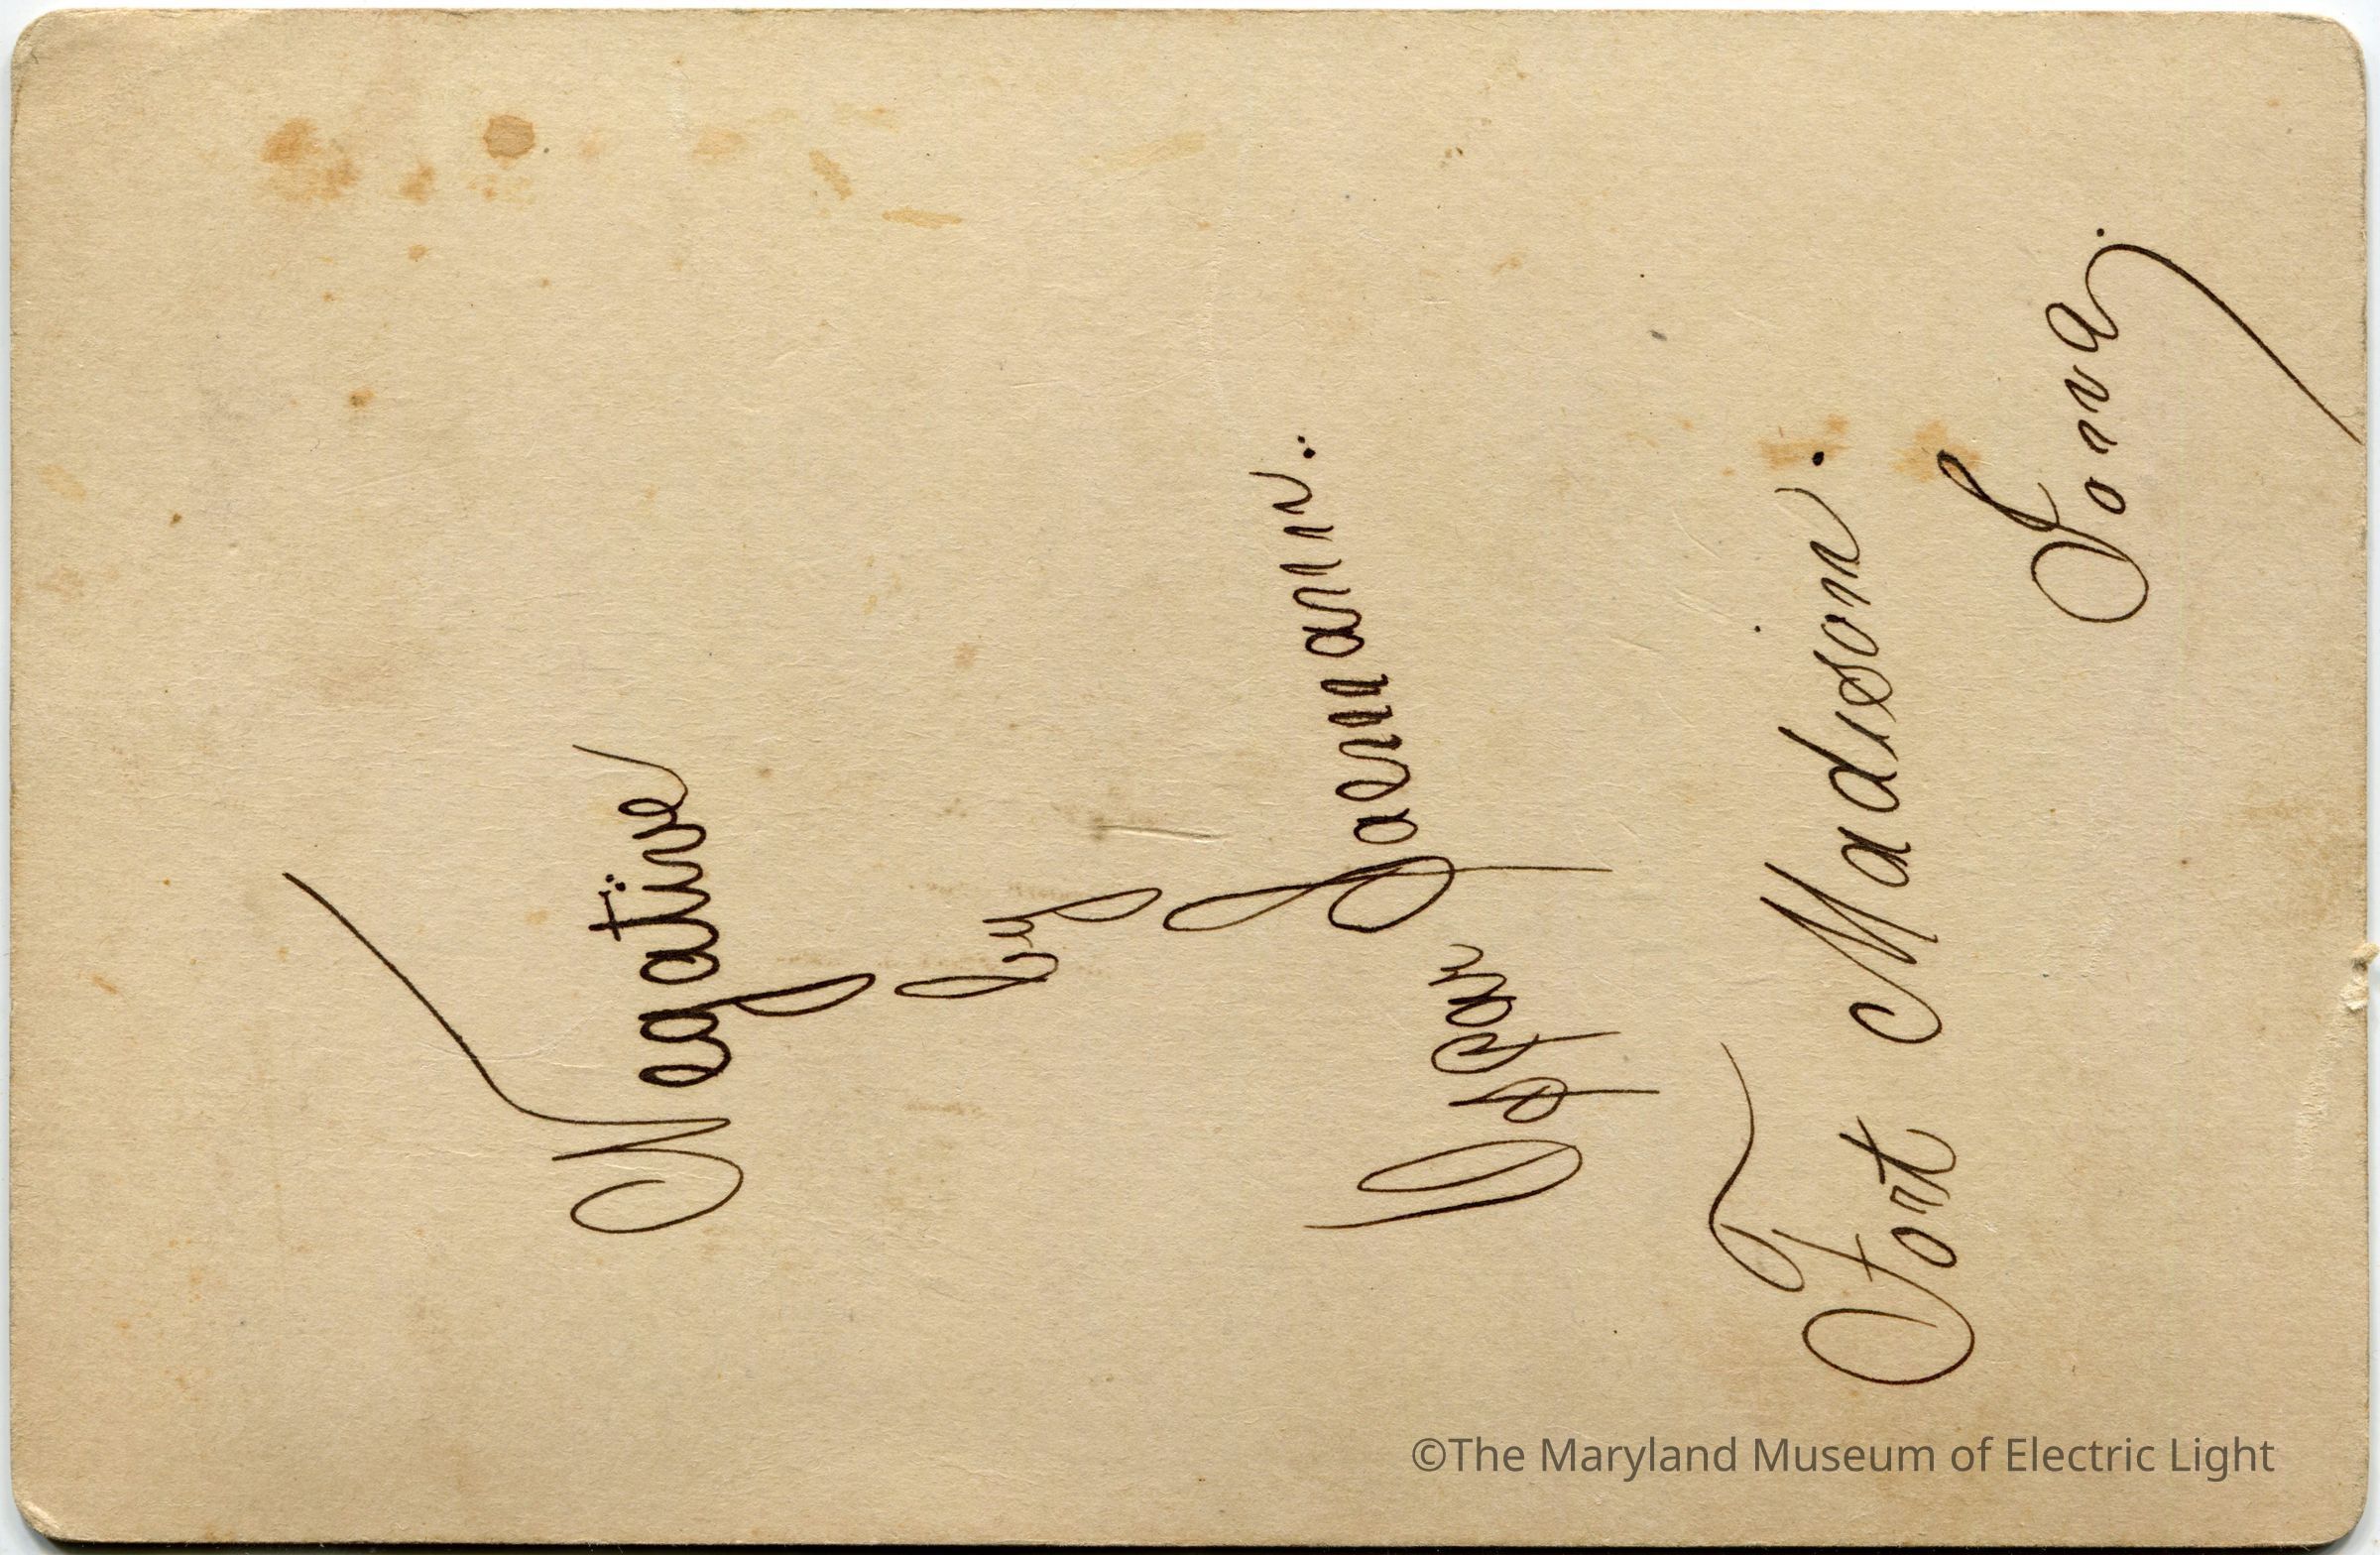 Negative
by
Jaumann.
Fort Madison.
Iowa.
©The Maryland Museum of Electric Light